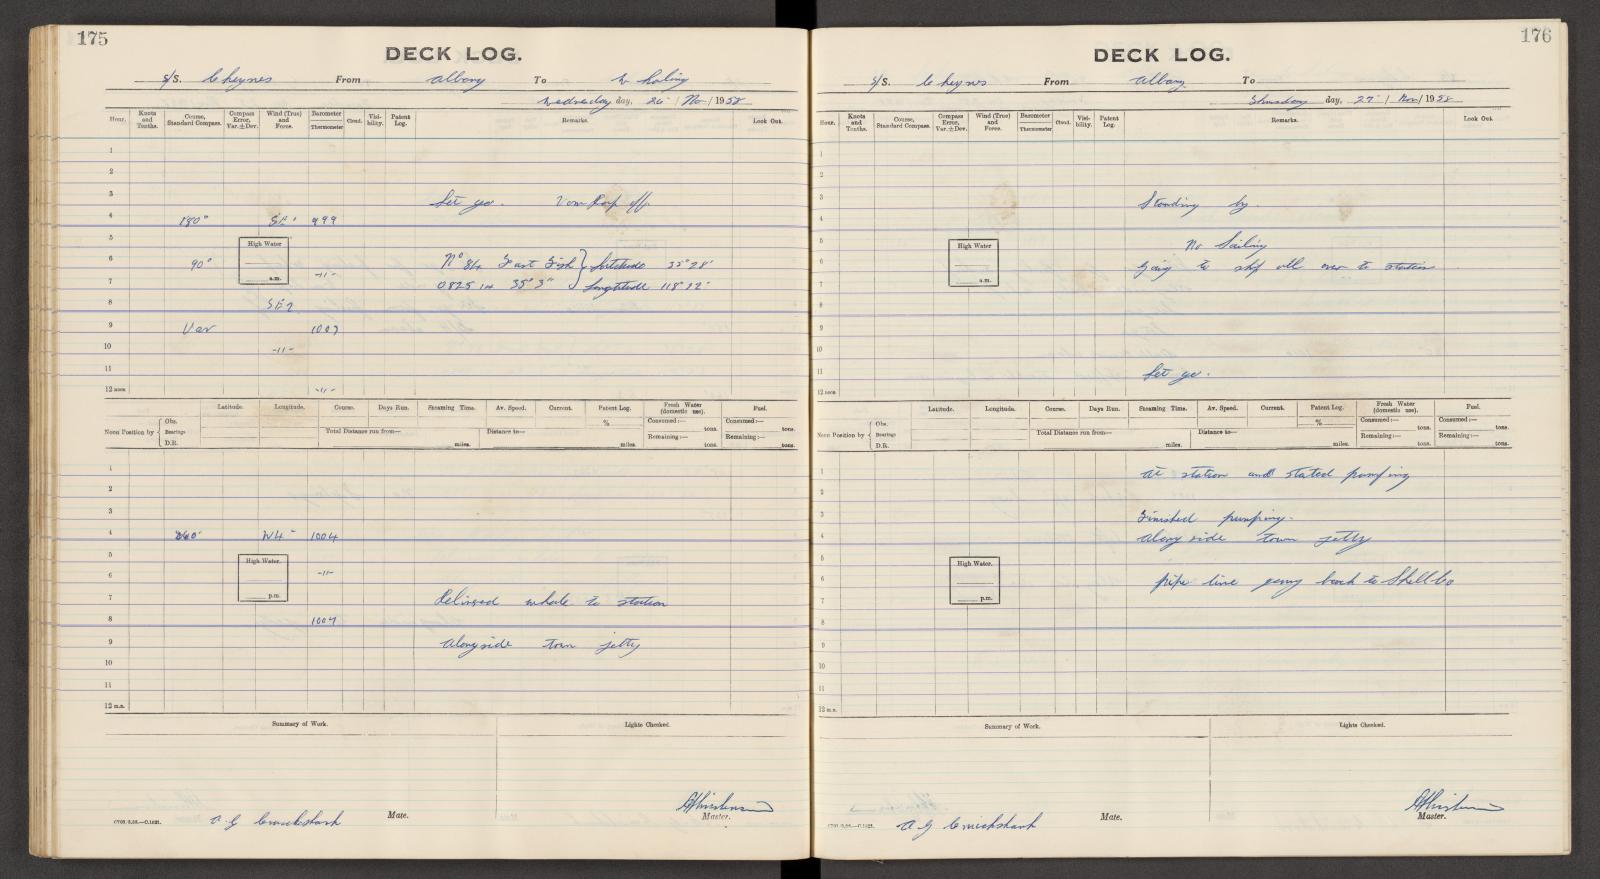 175
DECK LOG.
S/S. Cheynes From Albany To Whaling
Wednesday day, 26 / Nov / 1958
Hour. Knots and Tenths. Course, Standard Compass. Compass Error, Var.±Dev. Wind (True) and Force. Barometer Thermometer Cloud. Visi-bility. Patent Log. Remarks. Look Out.
1
2
3 Let go.
4 180° SE' 999
5 High Water
6 90° N° 84 Fast Fish } Latitude 35°28'
a.m. -11-
7 0825 35°3" Longtitude 118°12'
8 SE2
9 Var 1007
10 -11-
11
12 noon -11-
Latitude. Longitude. Course. Days Run. Steaming Time. Av. Speed. Current. Patent Log. Fresh Water (domestic use). Fuel.
Noon Position by { Obs. Bearings D.R. % Consumed:— tons. Consumed:— tons.
Total Distance run from— miles. Distance to— miles. Remaining:— tons. Remaining:— tons.
1
2
3
4 W4 1004
5 High Water.
6 -11-
p.m.
7 Delivered whale to station
8 1007
9 Alongside town jetty
10
11
12 m.n.
Summary of Work. Lights Checked.
A G Cruickshank Mate. Master.
176
DECK LOG.
S/S. Cheynes From Albany To
Thursday day, 27 / Nov / 1958
Hour. Knots and Tenths. Course, Standard Compass. Compass Error, Var.±Dev. Wind (True) and Force. Barometer Thermometer Cloud. Visi-bility. Patent Log. Remarks. Look Out.
1
2
3 Standing by.
4
5 High Water No Sailing
6 Going to shift oil over to station
7 a.m.
8
9
10
11 Let go.
12 noon
Latitude. Longitude. Course. Days Run. Steaming Time. Av. Speed. Current. Patent Log. Fresh Water (domestic use). Fuel.
Noon Position by { Obs. Bearings D.R. % Consumed:— tons. Consumed:— tons.
Total Distance run from— miles. Distance to— miles. Remaining:— tons. Remaining:— tons.
1 At station and stated pumping
2
3 Finished pumping.
4 Along side town jetty
5 High Water.
6 pipe line going back to Shell Co
7 p.m.
8
9
10
11
12 m.n.
Summary of Work. Lights Checked.
A G Cruickshank Mate. Master.